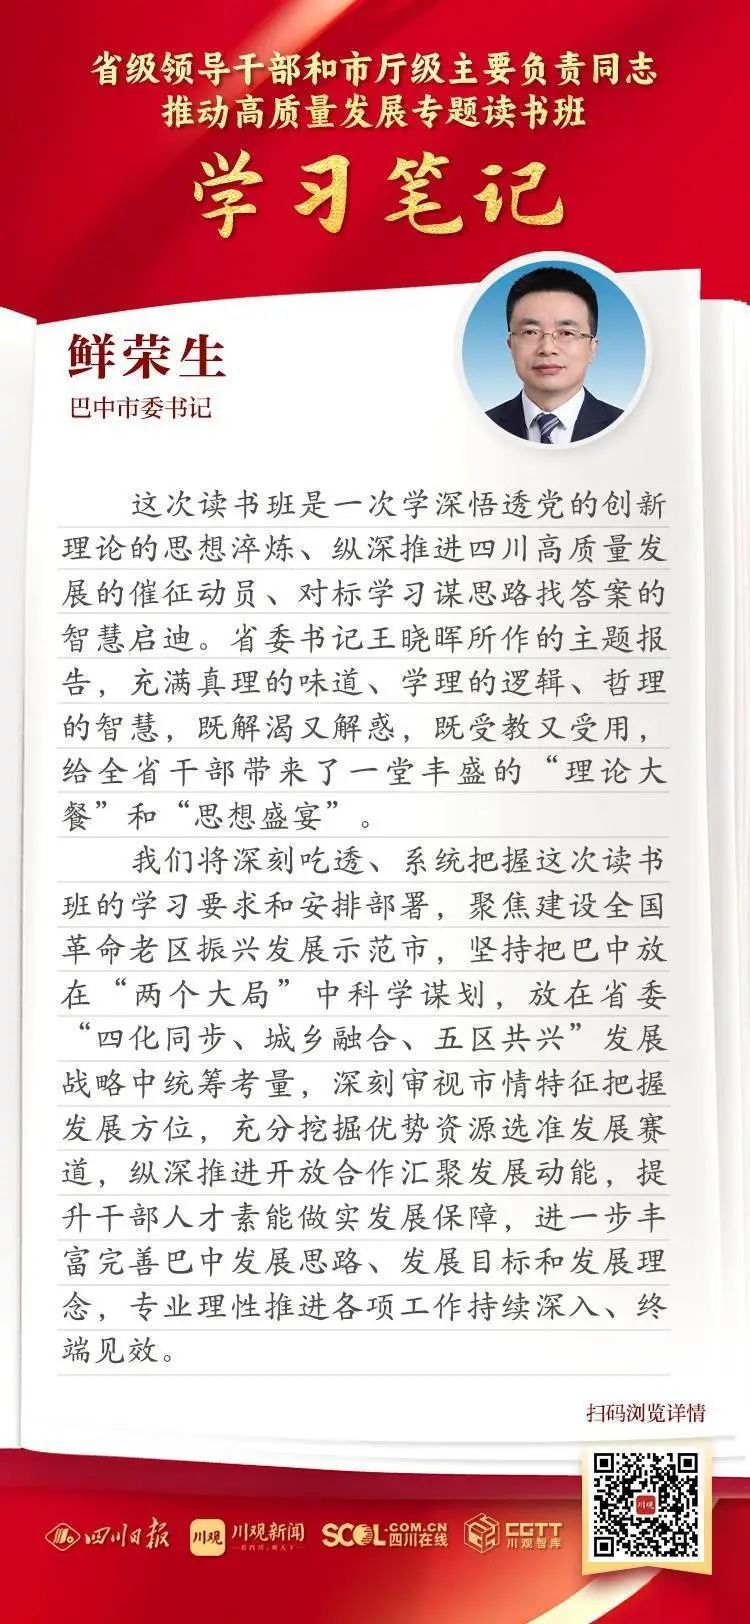 省级领导干部和市厅级主要负责同志
推动高质量发展专题读书班
学习笔记
鲜荣生
巴中市委书记
这次读书班是一次学深悟透党的创新
理论的思想淬炼、纵深推进四川高质量发
展的催征动员、对标学习谋思路找答案的
智慧启迪。省委书记王晓晖所作的主题报
告，充满真理的味道、学理的逻辑、哲理
的智慧，既解渴又解惑，既受教又受用，
给全省干部带来了一堂丰盛的“理论大
餐”和“思想盛宴”。
我们将深刻吃透、系统把握这次读书
班的学习要求和安排部署，聚焦建设全国
革命老区振兴发展示范市，坚持把巴中放
在“两个大局”中科学谋划，放在省委
“四化同步、城乡融合、五区共兴”发展
战略中统筹考量，深刻审视市情特征把握
发展方位，充分挖掘优势资源选准发展赛
道，纵深推进开放合作汇聚发展动能，提
升干部人才素能做实发展保障，进一步丰
富完善巴中发展思路、发展目标和发展理
念，专业理性推进各项工作持续深入、终
端见效。
扫码浏览详情
川观
四川日报
川观
川观新闻
SCOL.COM.CN
四川在线
CGTT
川观智库